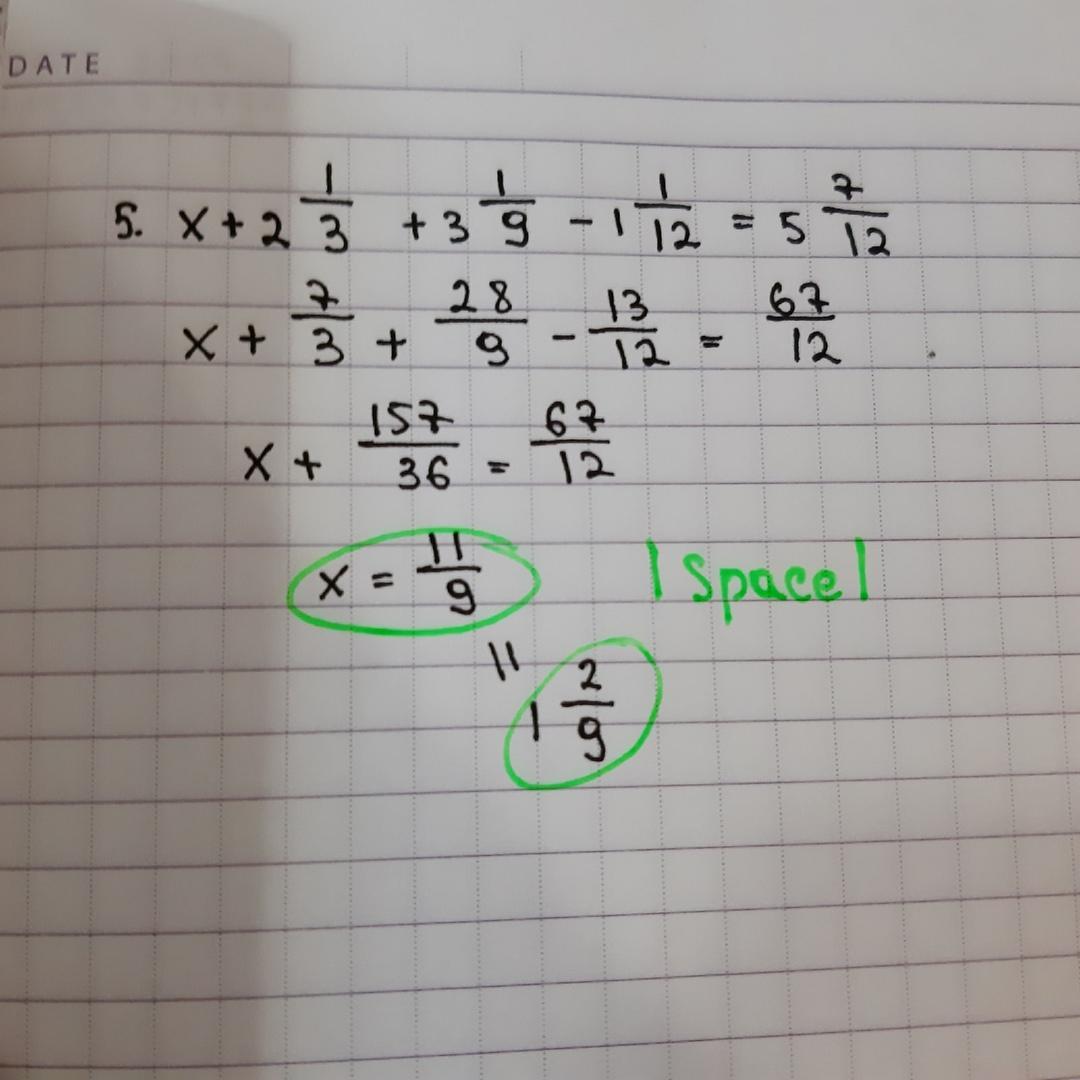 DATE
5. x + 2 1/3 + 3 1/9 - 1 1/12 = 5 7/12
x + 7/3 + 28/9 - 13/12 = 67/12
x + 157/36 = 67/12
x = 11/9 | Space |
=
1 2/9